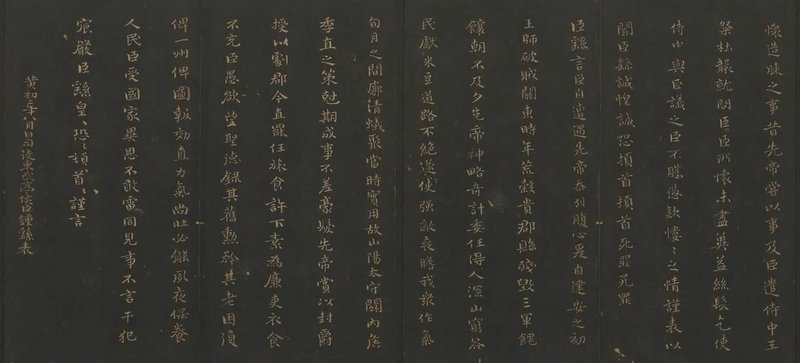 懐造膝之事昔先帝嘗以事及臣遣侍中王
粲杜襲就問臣臣所懐未盡奚益絲髮乞使
侍中與臣議之臣不勝愚款慺〻之情謹表以
聞臣繇誠惶誠恐頓首頓首死罪死罪
臣繇言臣自遭遇先帝忝列腹心爰自建安之初
王師破賊關東時年荒穀貴郡縣殘毀三軍餽
饟朝不及夕先帝神略奇計委任得人深山窮谷
民獻米豆道路不絶遂使強敵喪膽我衆作氣
旬月之間廓清蟻聚當時實用故山陽太守關內侯
季直之策尅期成事不差豪髮先帝賞以封爵
授以劇郡今直罷任旅食許下素為廉吏衣食
不充臣愚欲望聖德錄其舊勲矜其老困復
俾一州俾圖報効直力氣尚壯必能夙夜保養
人民臣受國家異恩不敢雷同見事不言干犯
宸嚴臣繇皇〻恐〻頓首〻謹言
黃初二年八月日司徒東武亭侯臣鍾繇表